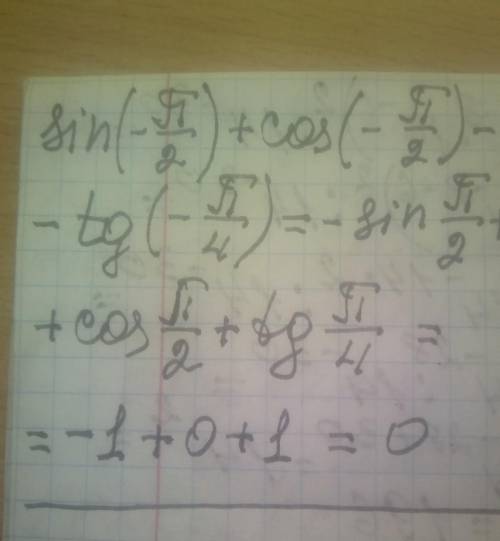 sin(-π/2) + cos(-π/2) -
- tg(-π/4) = - sin π/2 +
+ cos π/2 + tg π/4 =
= -1 + 0 + 1 = 0